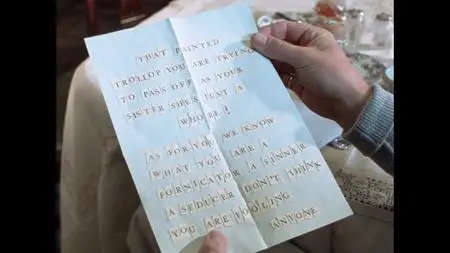 THAT PAINTED
TROLLOP YOU ARE TRYING
TO PASS OFF AS YOUR
SISTER SHE'S JUST A
WHORE!
AS FOR YOU WE KNOW
WHAT YOU ARE A
FORNICATOR A SINNER
A SEDUCER DON'T THINK
YOU ARE FOOLING
ANYONE